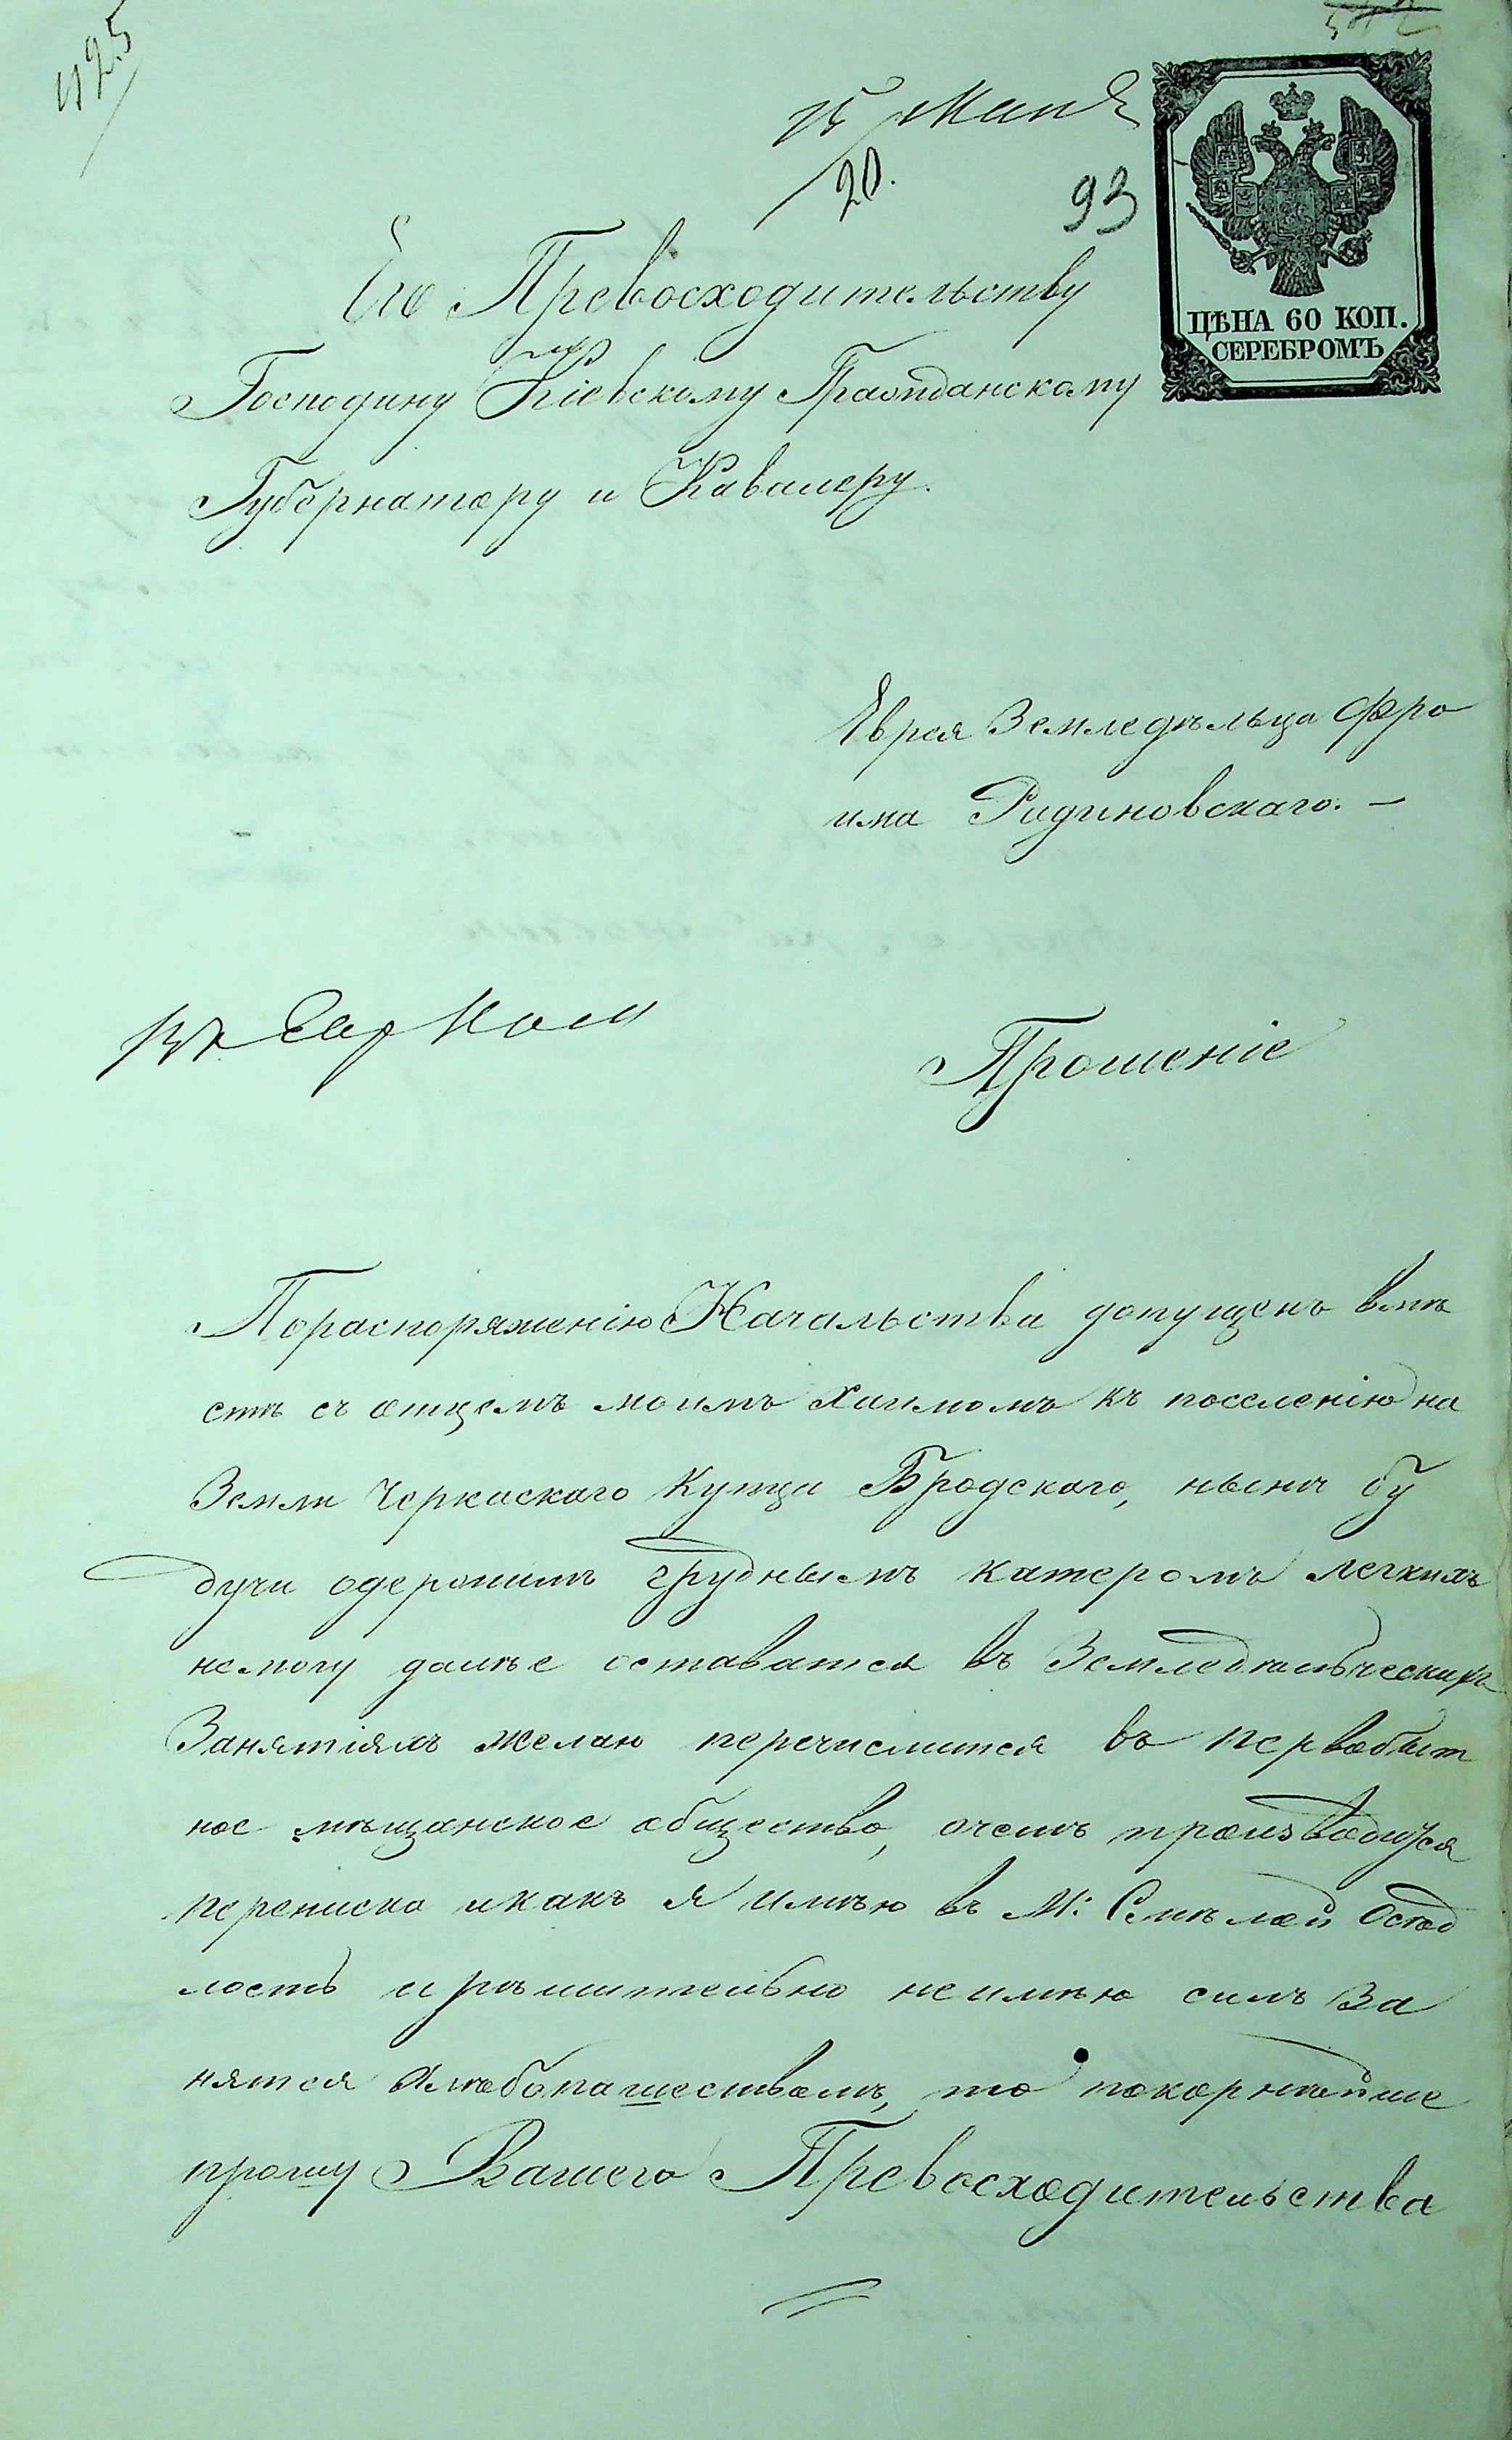 425
15 Мая
20.
93
ЦѢНА 60 КОП.
СЕРЕБРОМЪ
Его Превосходительству
Господину Кіевскому Гражданскому
Губернатору и Кавалеру.
Еврея Земледѣльца Фро
има Радиновскаго. –
Прошеніе
Пораспоряженію Начальства допущенъ вмѣ
стѣ съ отцемъ моимъ Хаимомъ къ поселенію на
Земли Черкаскаго Купца Бродскаго, нынѣ бу
дучи одержимъ груднымъ катеромъ легкихъ
немогу далѣе оставатся въ Земледѣльческихъ
Занятіяхъ желаю перечислится въ первобыт
ное мѣщанское общество, очемъ производится
переписка икакъ я имѣю въ М: Смѣлой Осѣд
лость ирѣшительно неимѣю силъ За
нятся хлѣбопашествомъ, то покорнѣйше
прошу Вашего Превосходительства